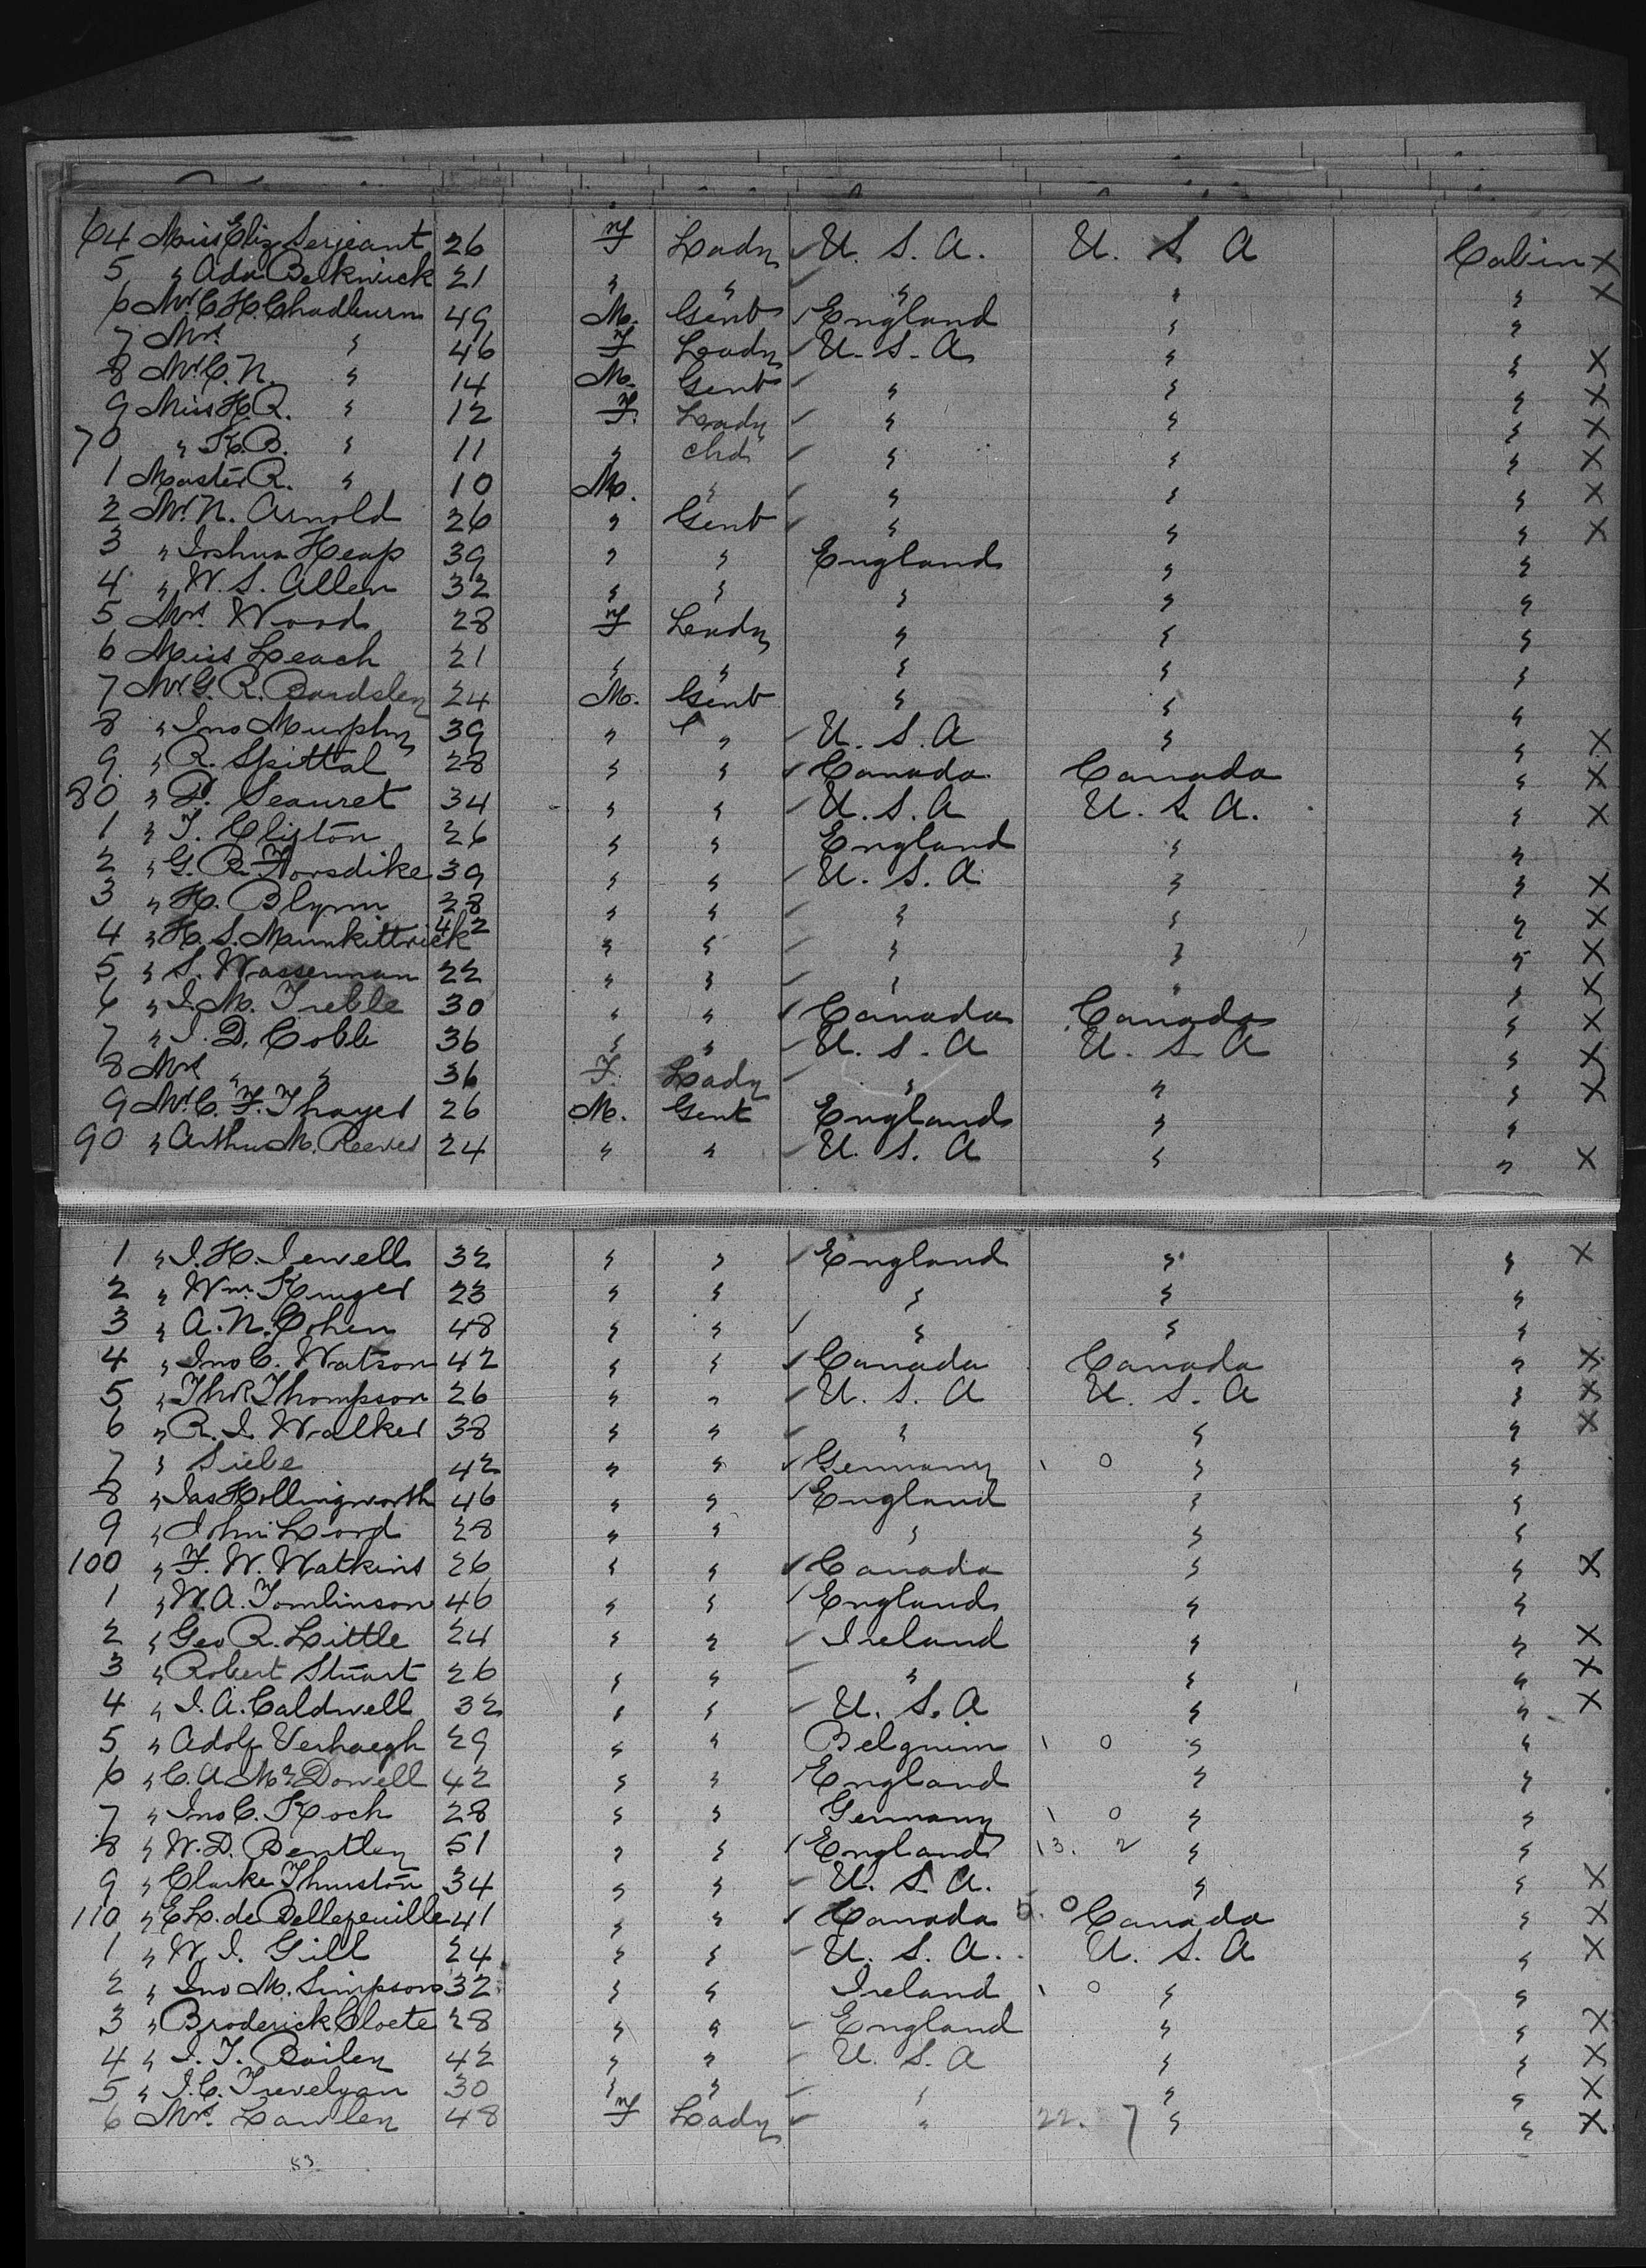 64 Miss Eliz Serjeant 26 F Lady ✓ U. S. A. U. S. A Cabin X
5 " Ada 21 " " ✓ " " " X
6 Mr C. H. Chadburn 49 M. Gent ✓ England " "
7 Mrs " 46 F Lady ✓ U. S. A " " X
8 Mr C. N. " 14 M. Gent ✓ " " " X
9 Miss H. R. " 12 F. Lady ✓ " " " X
70 " K. B. " 11 " chd ✓ " " " X
1 Master R. " 10 M. " ✓ " " " X
2 Mr N. Arnold 26 " Gent ✓ " " " X
3 " Joshua Heap 39 " " England " "
4 " W. S. Allen 32 " " " " "
5 Mrs Wood 28 F Lady " " "
6 Miss Leach 21 " " " " "
7 Mr G. R. Bardsley 24 M. Gent " " "
8 " Jno Murphy 39 " " U. S. A " " X
9 " R. Spittal 28 " " ✓ Canada Canada " X
80 " Seauret 34 " " ✓ U. S. A U. S. A. " X
1 " T. Clifton 26 " " England " "
2 " G. R. Horsdike 39 " " ✓ U. S. A " " X
3 " H. Blynn 28 " " ✓ " " " X
4 " H. S. Munkittrick 42 " " ✓ " " " X
5 " S. Wasserman 22 " " ✓ " " " X
6 " J. M. Treble 30 " " ✓ Canada Canada " X
7 " J. D. Cobb 36 " " ✓ U. S. A U. S. A " X
8 Mrs " " 36 F. Lady ✓ " " " X
9 Mr C. F. Thayer 26 M. Gent England " "
90 " Arthur M. Reeves 24 " " ✓ U. S. A " " X
1 " J. H. Jewell 32 " " ✓ England " " X
2 " Wm. Kruger 23 " " " " "
3 " A. N. Cohen 48 " " ✓ " " "
4 " Jno C. Watson 42 " " ✓ Canada Canada " X
5 " Th R Thompson 26 " " ✓ U. S. A U. S. A " X
6 " R. J. Walker 38 " " ✓ " " " X
7 " Siebe 42 " " ✓ Germany 1 0 " "
8 " Jas Hollingworth 46 " " ✓ England " "
9 " John Lord 28 " " " " "
100 " F. W. Watkins 26 " " ✓ Canada " " X
1 " W. A. Tomlinson 46 " " ✓ England " "
2 " Geo R. Little 24 " " ✓ Ireland " " X
3 " Robert Stuart 26 " " ✓ " " " X
4 " J. A. Caldwell 32 " " ✓ U. S. A " " X
5 " Adolf Verhaegh 29 " " Belgium 1 0 " "
6 " C. A. McDowell 42 " " England " "
7 " Jno C. Koch 28 " " Germany 1 0 " "
8 " W. D. Bentley 51 " " ✓ England 13. 2 " "
9 " Clarke Thurston 34 " " ✓ U. S. A. " " X
110 " E L. de Bellefeuille 41 " " ✓ Canada 5. 0 Canada " X
1 " W. J. Gill 24 " " ✓ U. S. A. U. S. A " X
2 " Jno M. Simpson 32 " " Ireland 1 0 " "
3 " Broderick Cloete 28 " " ✓ England " " X
4 " J. T. Bailey 42 " " ✓ U. S. A " " X
5 " J. C. Trevelyan 30 " " ✓ " " " X
6 Mrs. Lawley 48 F Lady ✓ " 22. 7 " " X
53